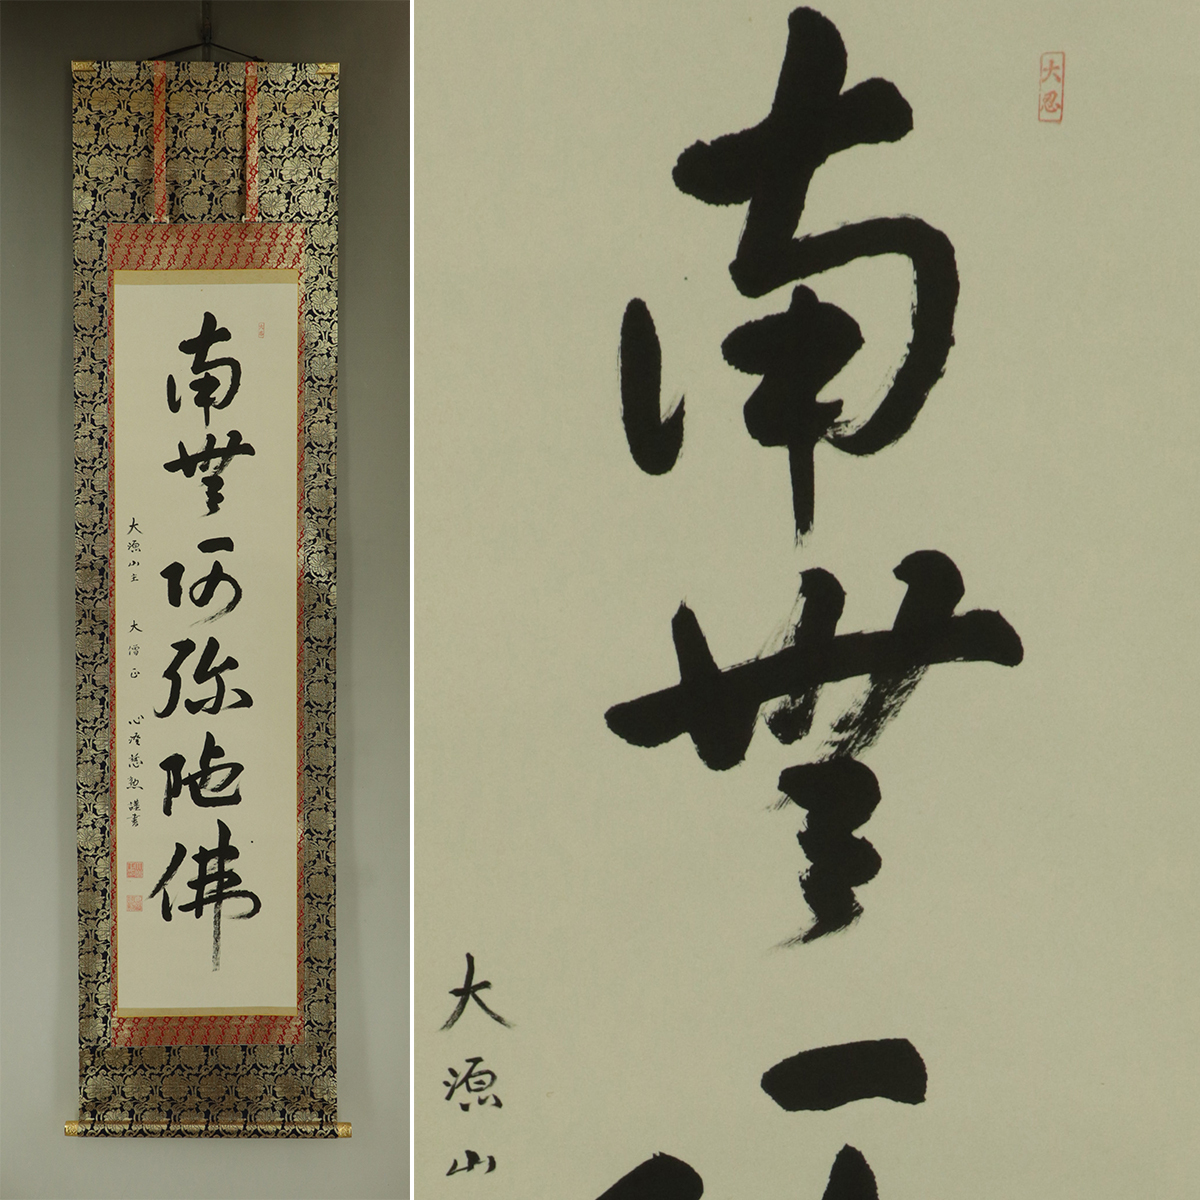 南無阿弥陀佛
大源山主 大僧正 心産慈勲 謹書
大忍
南無
大源山